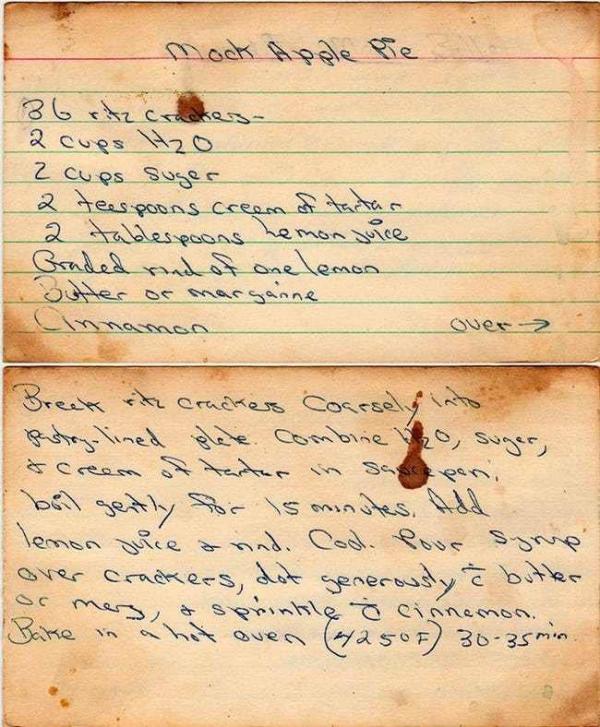 Mock Apple Pie
36 ritz crackers-
2 cups H2O
2 cups suger
2 teespoons creem of tartar
2 tablespoons lemon juice
Graded rind of one lemon
Butter or margarine
Cinnamon over →
Breek ritz crackers Coarsely into
pastry-lined plete. Combine H2O, suger,
& creem of tartar in saucepan,
boil gently for 15 minutes. Add
lemon juice & rind. Cool. Pour syrup
over crackers, dot generously c̄ butter
or marg, & sprinkle c̄ cinnamon.
Bake in a hot oven (425°F) 30-35 min.